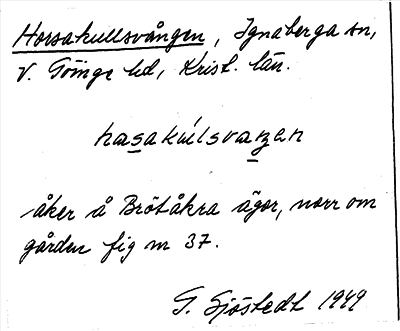 Horsakullsvången, Ignaberga sn,
V. Göinge hd, Krist. län.
hasakúlsvaŋən
åker å Brötåkra ägor, norr om
gården fig nr 37.
G. Sjöstedt 1949